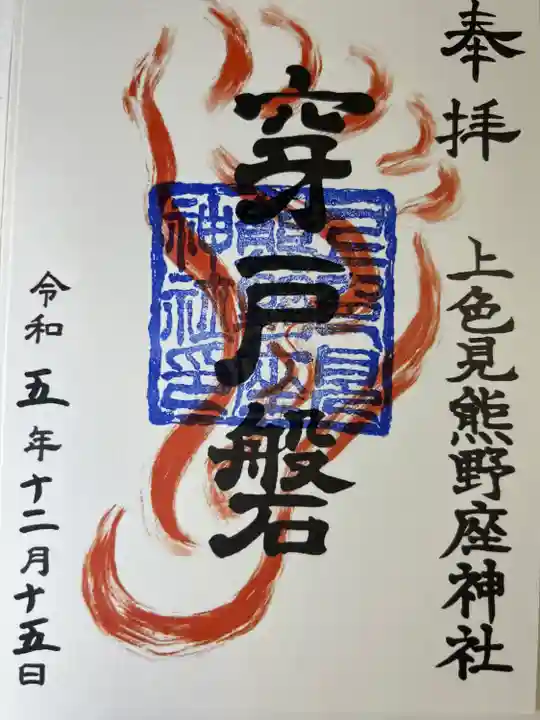 奉拝
上色見熊野座神社
穿戸磐
上色見
熊野座
神社印
令和五年十二月十五日